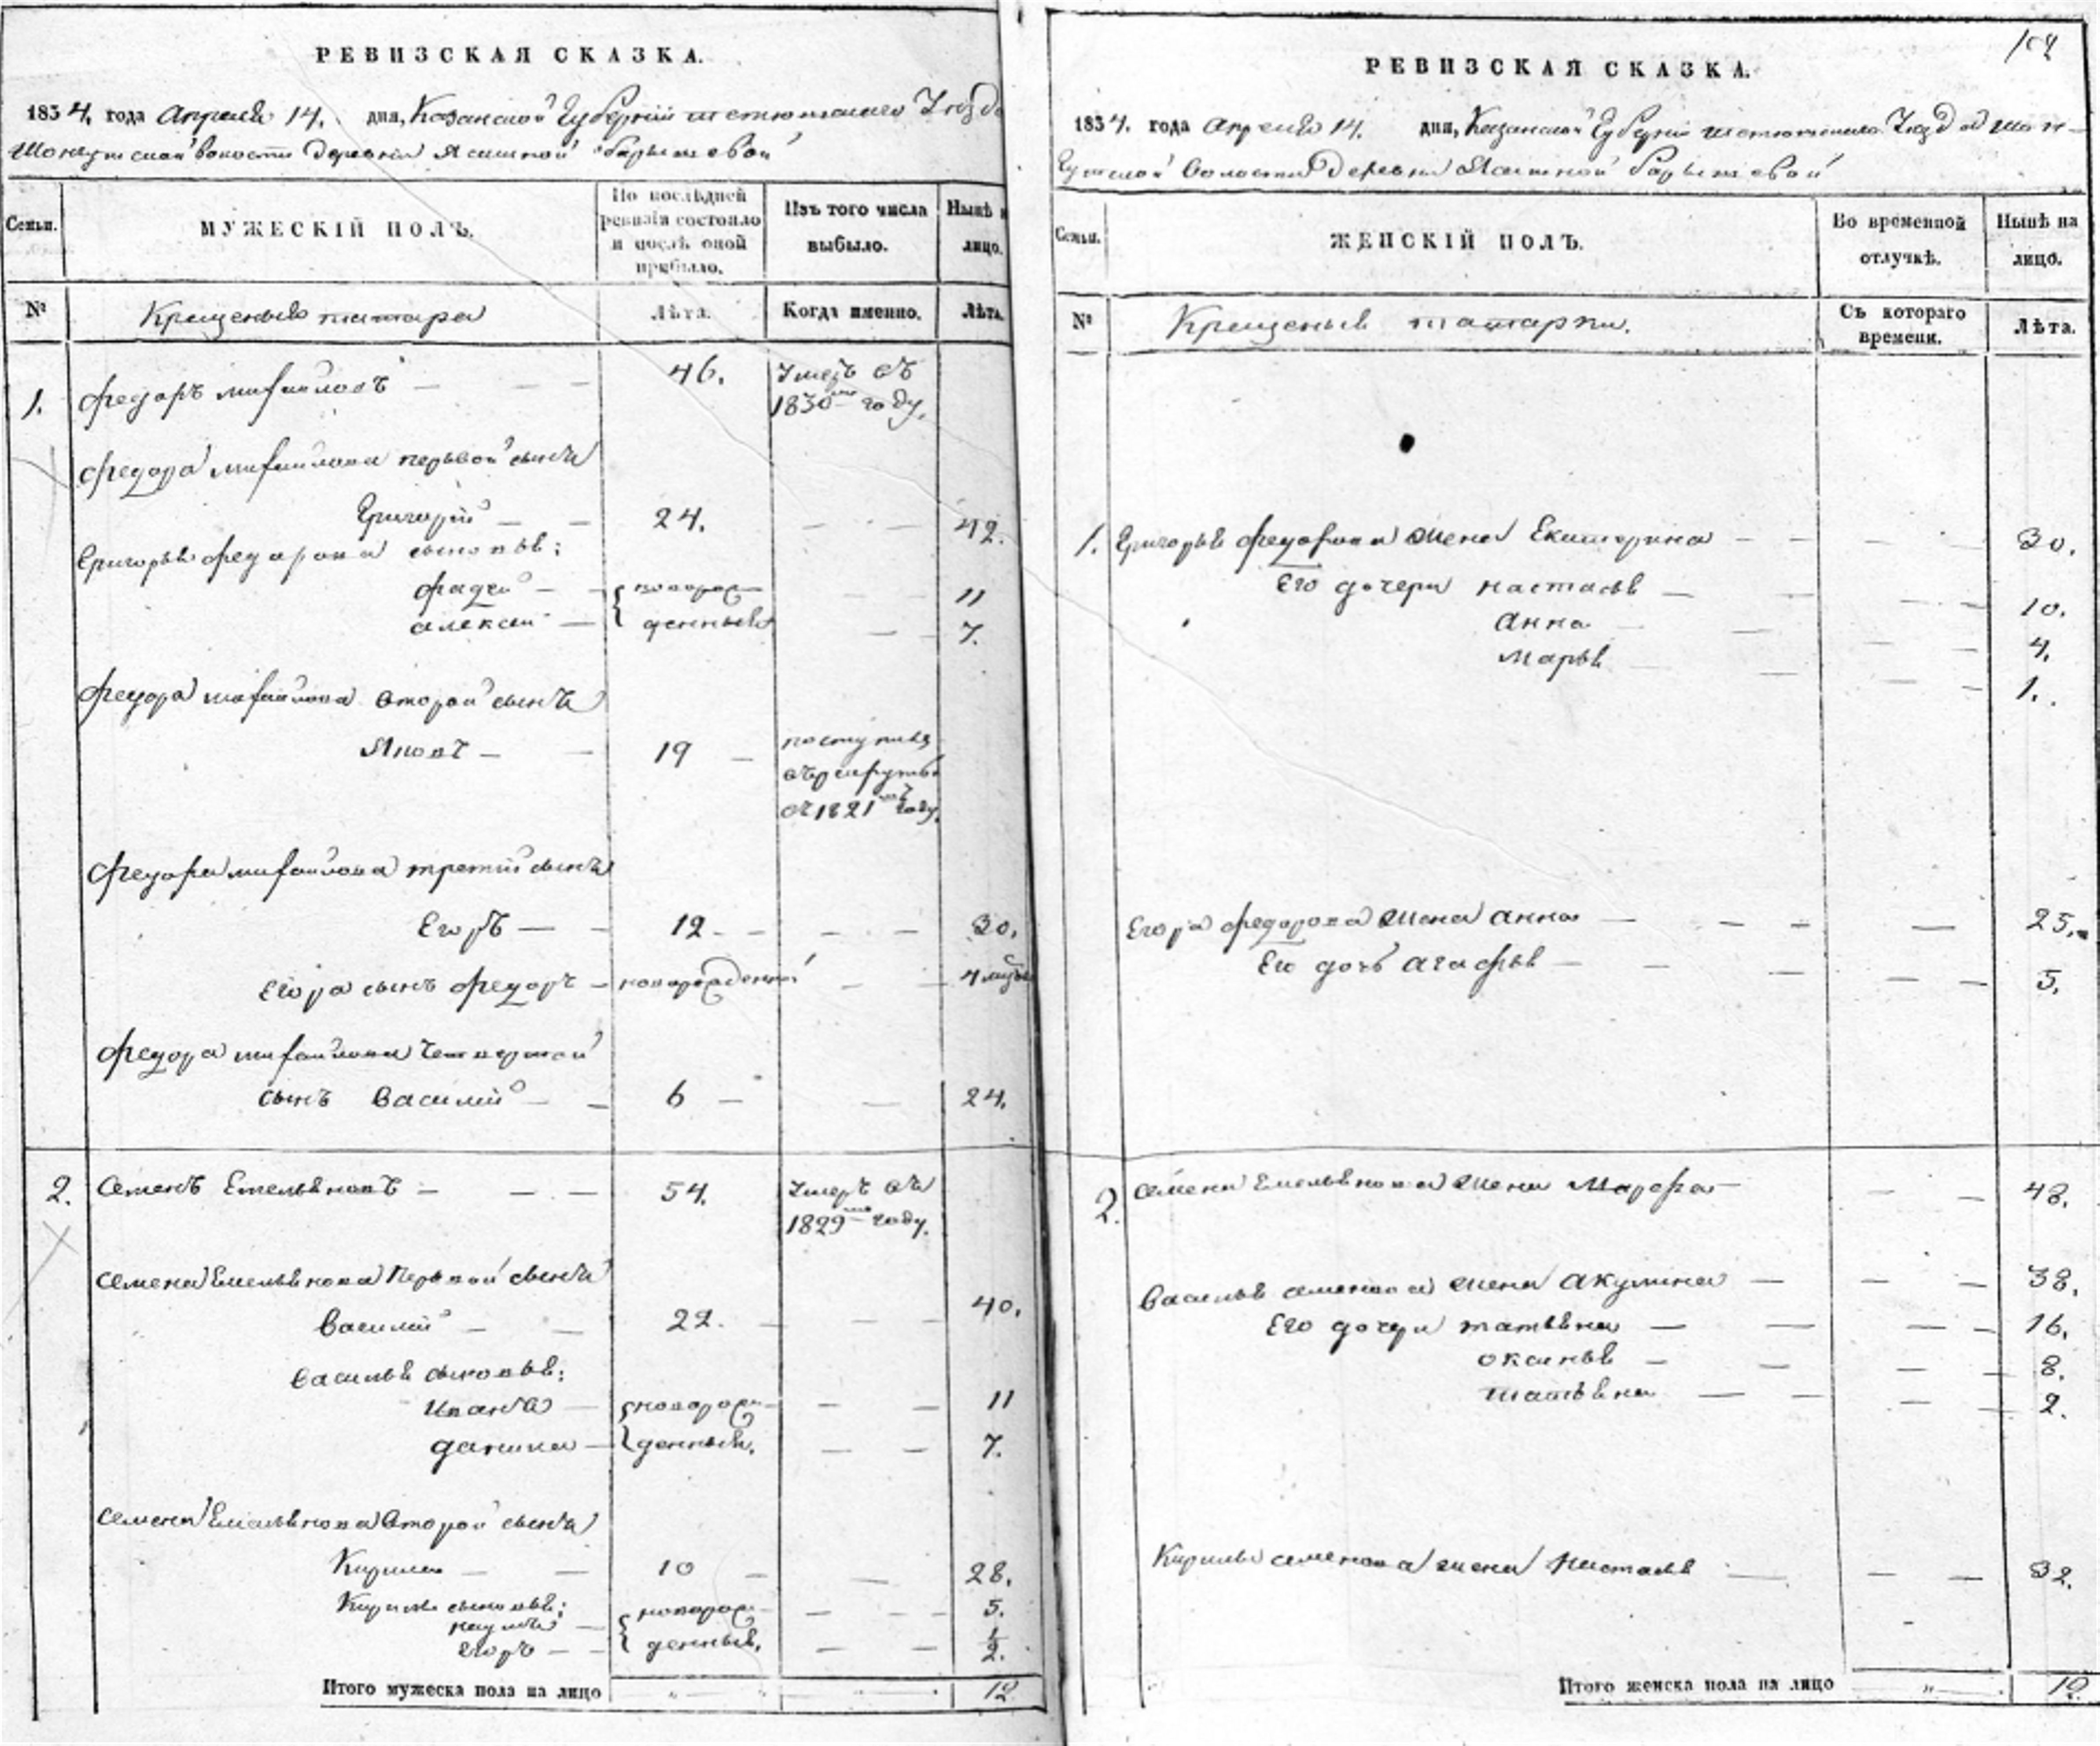 РЕВИЗСКАЯ СКАЗКА.
1834, года Апреля 14. дня, Казанской Губернии тетюшскаго Уезда
Шонгутской волости Деревни Ясашной барышевой
Семьи.
МУЖЕСКІЙ ПОЛЪ.
По послѣдней ревизіи состояло и послѣ оной прибыло.
Изъ того числа выбыло.
Нынѣ на лицо.
№
Крещеныя татара
Лѣта.
Когда именно.
Лѣта.
1. Федоръ михаиловъ — 46. Умеръ въ
1830мъ году.
Федора михаилова первой сынъ
Григорей — 24. — 42.
Григорья федорова сыновья:
фадей — { новорож — 11
алексей — { денныя — 7.
Федора михаилова второй сынъ
Яковъ — 19 — поступилъ
въ рекруты
въ 1821мъ году.
Федора михаилова третий сынъ
Егоръ — 12 — 30.
Егора сынъ федоръ — новорожденной — 4 месяца
Федора михаилова четвертой
сынъ Василий — 6 — 24.
2. Семенъ Емельяновъ — 54. Умеръ въ
1829мъ году.
Семена Емельянова Первой сынъ
Василий — 22. — 40.
Василья сыновья:
Иванъ — { новорож — 11
данила — { денныя. — 7.
Семена Емельянова Второй сынъ
Кирила — 10 — 28.
Кирилы сыновья:
наумъ — { новорож — 5.
егоръ — { денныя. — 1/2.
Итого мужеска пола на лицо „ 12
104
РЕВИЗСКАЯ СКАЗКА.
1834. года апреля 14. дня, Казанской Губернии тетюшскаго Уезда Шон-
гутской Волости Деревни Ясашной барышевой
Семьи.
ЖЕНСКІЙ ПОЛЪ.
Во временной отлучкѣ.
Нынѣ на лицо.
№
Крещеныя татарки.
Съ котораго времени.
Лѣта.
1. Григорья федорова жена Екатерина — 30.
Его дочери настасья — 10.
Анна — 4.
Марья — 1.
Егора федорова жена анна — 25.
Его дочь агафья — 5.
2. Семена Емельянова жена Марфа — 48.
Василья семенова жена акулина — 38.
Его дочери татьяна — 16.
оксинья — 8.
татьяна — 2.
Кирилы семенова жена Настасья — 32.
Итого женска пола на лицо „ 12.